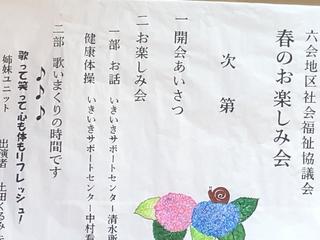 六会地区社会福祉協議会
春のお楽しみ会
次第
一 開会あいさつ
二 お楽しみ会
一部 お話 いきいきサポートセンター清水所
健康体操 いきいきサポートセンター中村看
二部 歌いまくりの時間です
♪♪♪
歌って笑って心も体もリフレッシュ!
姉妹ユニット
出演者 土田くるみ